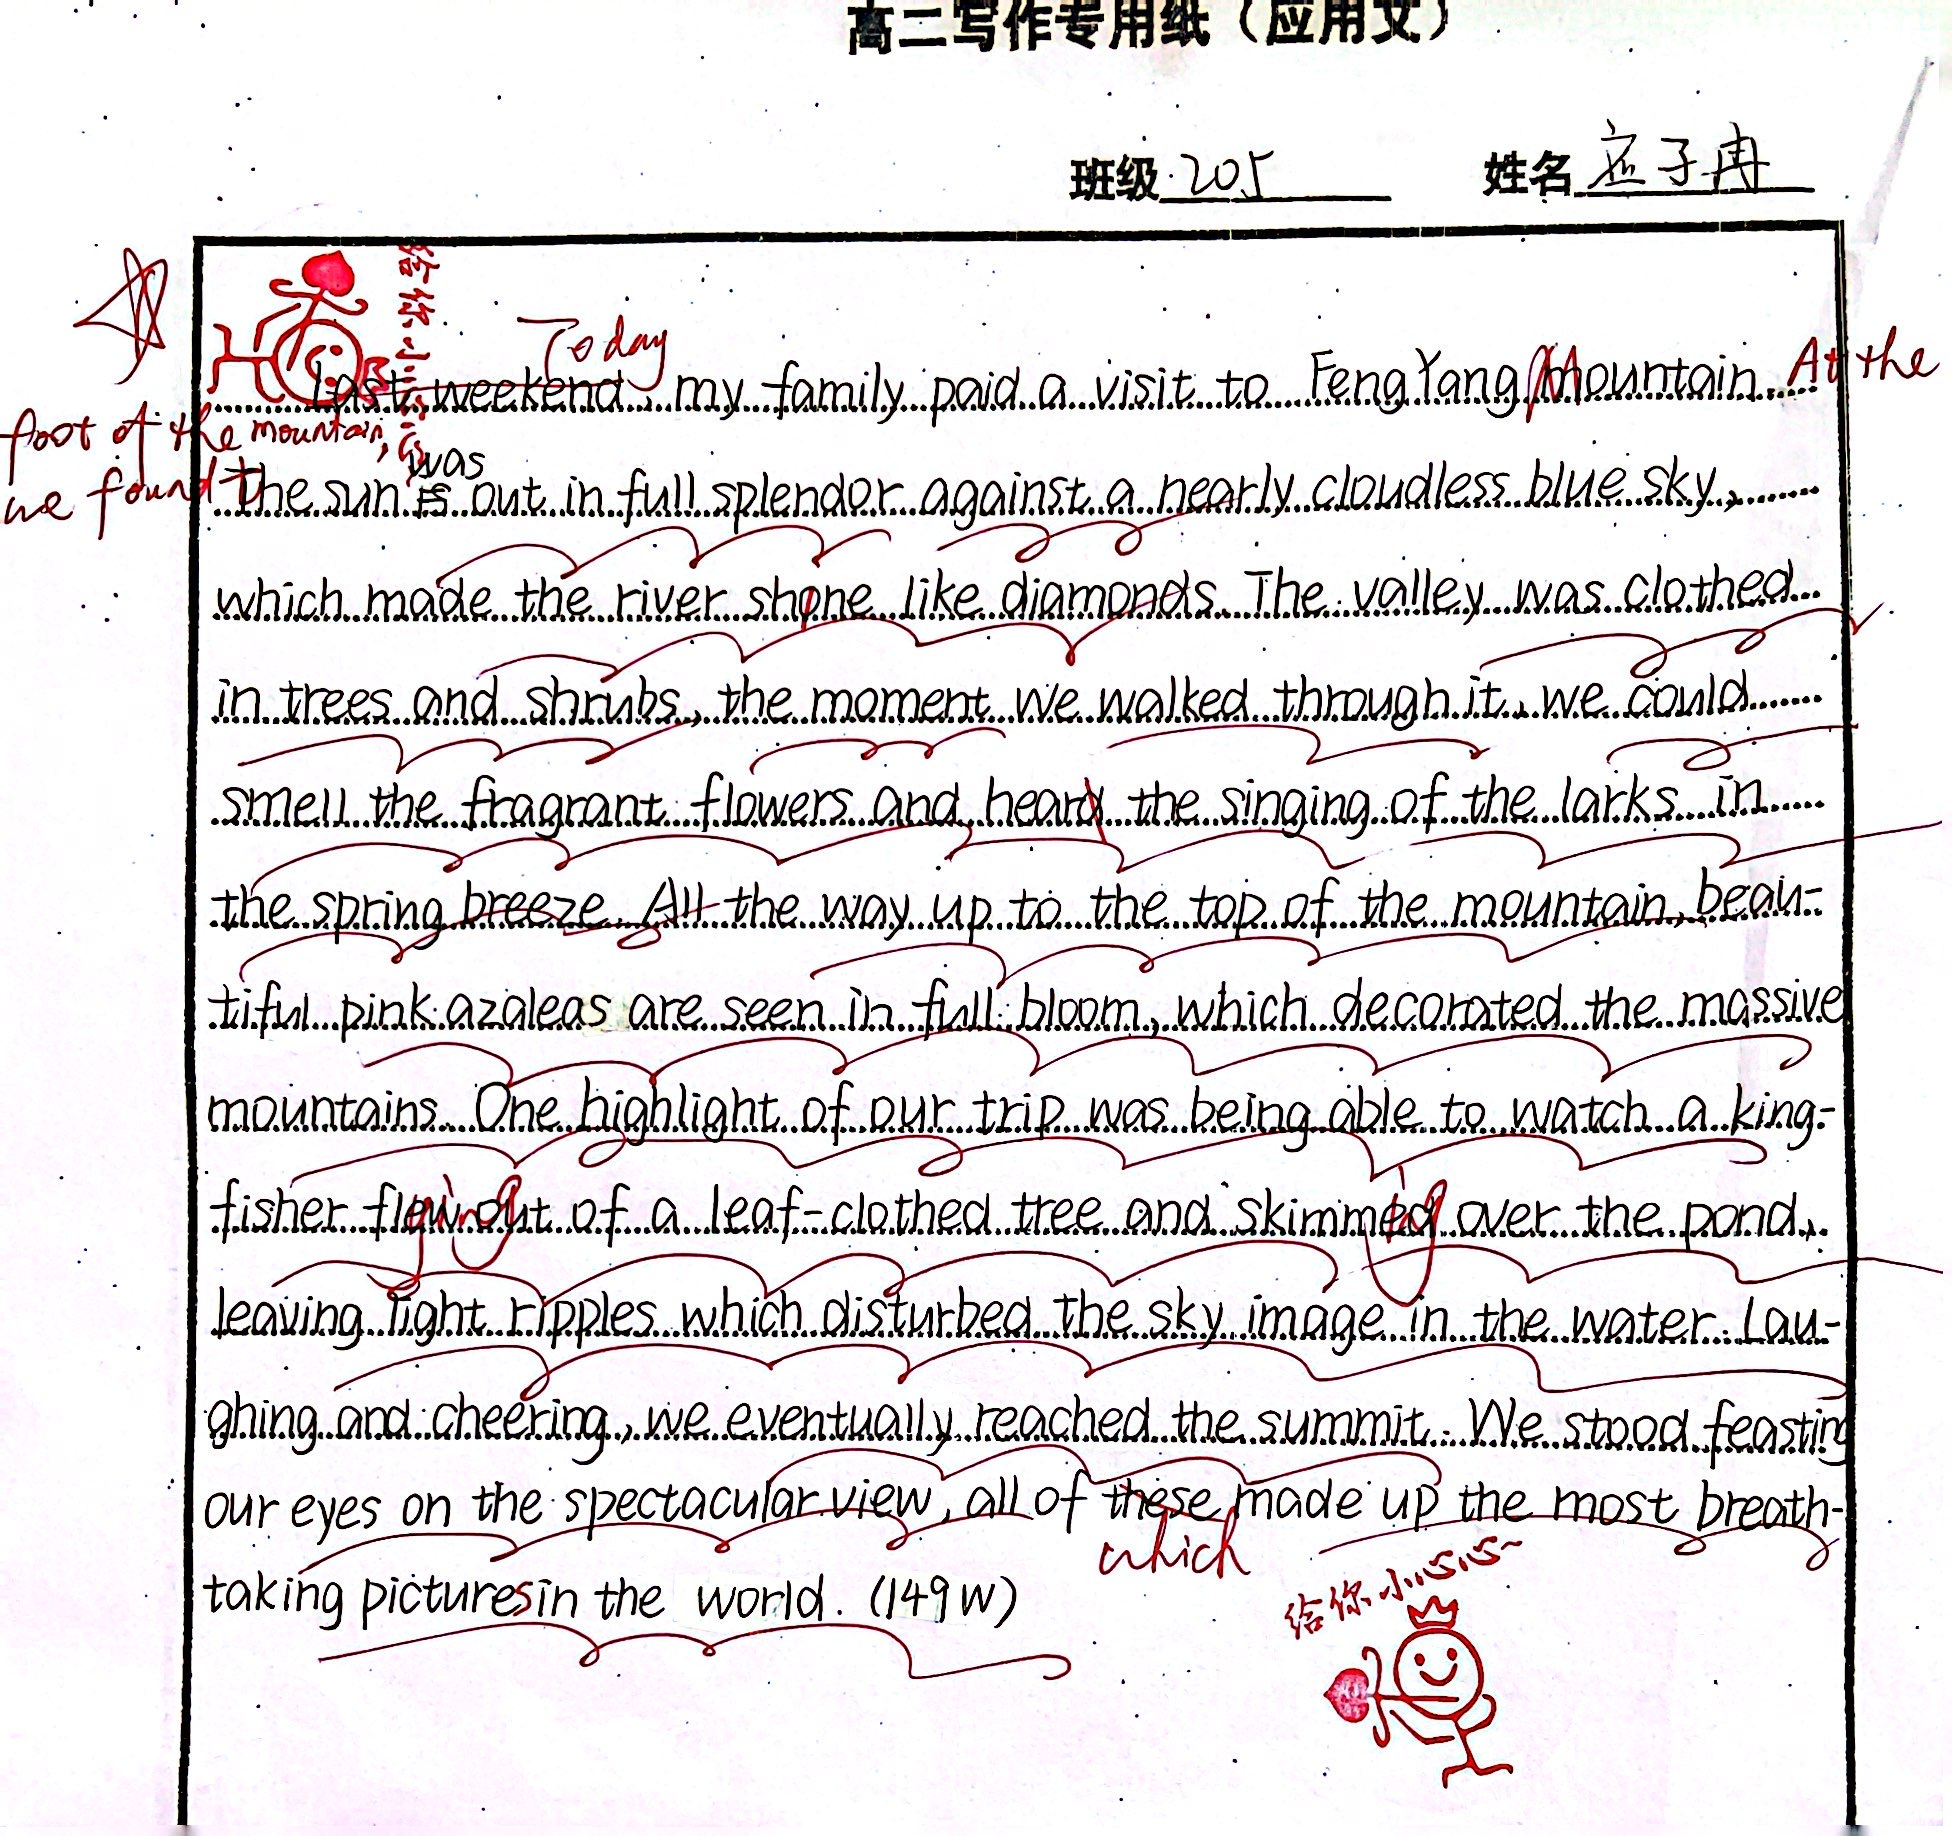 高二写作专用纸（应用文）
班级 205 姓名 应子冉
Today
Last weekend, my family paid a visit to FengYang Mountain. At the
foot of the mountain,
was
we found the sun is out in full splendor against a nearly cloudless blue sky,
which made the river shone like diamonds. The valley was clothed
in trees and shrubs, the moment we walked through it, we could
smell the fragrant flowers and heard the singing of the larks in
the spring breeze. All the way up to the top of the mountain, beau-
tiful pink azaleas are seen in full bloom, which decorated the massive
mountains. One highlight of our trip was being able to watch a king-
ying ing
fisher flew out of a leaf-clothed tree and skimmed over the pond,
leaving light ripples which disturbed the sky image in the water. Lau-
ghing and cheering, we eventually reached the summit. We stood feasting
our eyes on the spectacular view, all of these made up the most breath-
which
taking pictures in the world. (149w)
给你小心心~